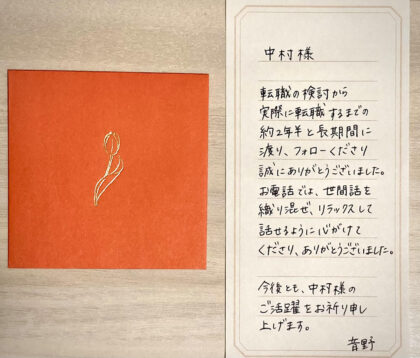 中村様
転職の検討から
実際に転職するまでの
約2年半と長期間に
渡り、フォローくださり
誠にありがとうございました。
お電話では、世間話を
織り混ぜ、リラックスして
話せるように心がけて
くださり、ありがとうございました。
今後とも、中村様の
ご活躍をお祈り申し
上げます。
音野